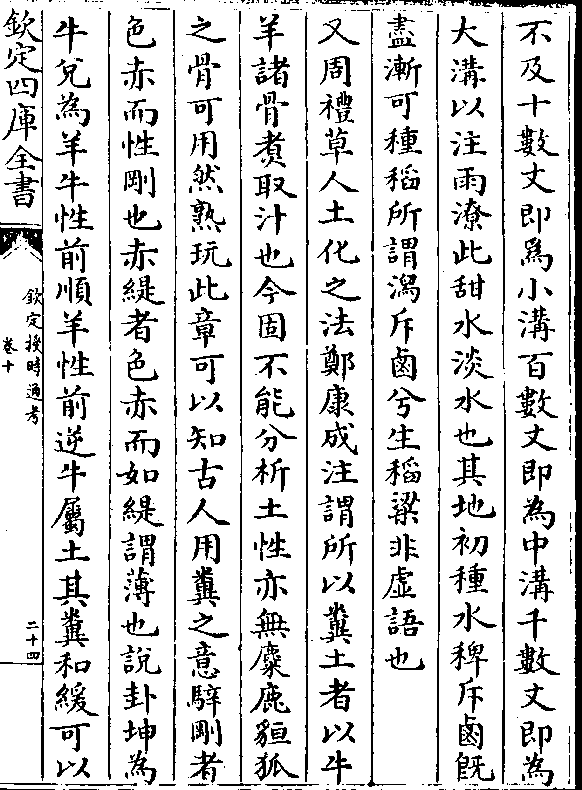 不及十數丈即爲小溝百數丈即為中溝千數丈即為
大溝以注雨潦此甜水淡水也其地初種水稗斥鹵旣
盡漸可種稻所謂瀉斥鹵兮生稻粱非虛語也
又周禮草人土化之法鄭康成注謂所以糞土者以牛
羊諸骨煑取汁也今固不能分析土性亦無麋鹿貆狐
之骨可用然熟玩此章可以知古人用糞之意騂剛者
色赤而性剛也赤緹者色赤而如緹謂薄也說卦坤為
牛兌為羊牛性前順羊性前逆牛屬土其糞和緩可以
欽定四庫全書
欽定授時通考
卷十
二十四